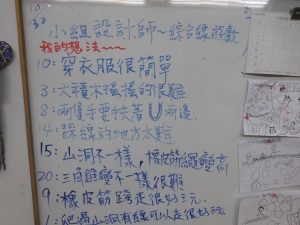 小組設計師~綜合線遊戲
我的想法~~~
10:穿衣服很簡單
3:大積木搖搖的很難
8:兩隻手要扶著U兩邊
14:踩線的地方太難
15:山洞不一樣,橡皮筋繩變高
20:三角錐變不一樣很難
9:橡皮筋跨走很好玩
1:爬過山洞有線可以走很好玩